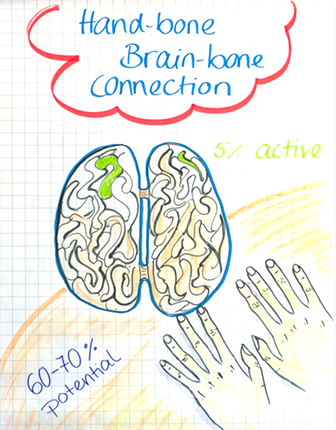 Hand-bone
Brain-bone
Connection
5% active
60-70%
potential